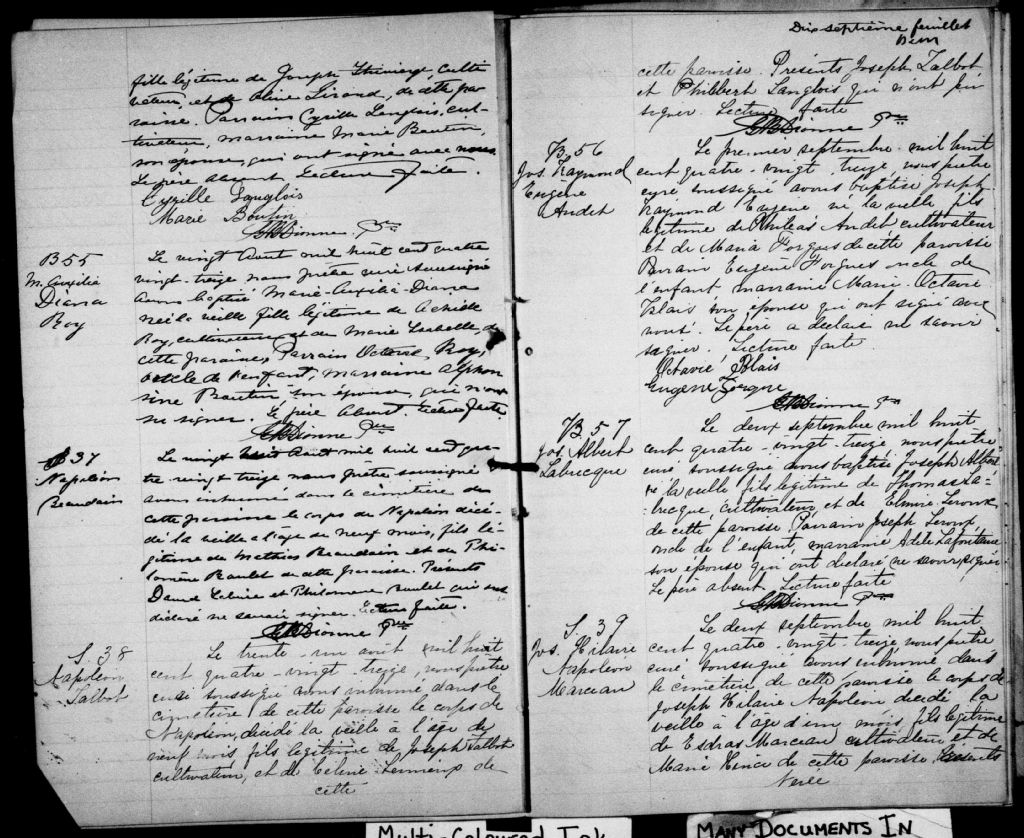 fille légitime de Joseph Thivierge, culti
vateur, et de Oline Girard, de cette pa
roisse. Parrain Cyrille Langlois, cul-
tivateur, marraine Marie Boutin,
son épouse, qui ont signé avec nous.
Le père absent. Lecture faite.
Cyrille Langlois
Marie Boutin
Dionne Ptre
B 55
M. Auxilia
Diana
Roy
Le vingt Aout mil huit cent quatre
vingt-treize nous prêtre curé soussigné
avons baptisé Marie-Auxilia-Diana
née la veille fille légitime de Achille
Roy, cultivateur et de Marie Isabelle de
cette paroisse, Parrain Octave Roy,
oncle de l'enfant, marraine Alphon
sine Boutin son épouse, qui n'ont
su signer. Le père absent. Lecture faite.
Dionne Ptre
S 37
Napoléon
Beaudoin
Le vingt huit Aout mil huit cent qua
tre-vingt treize nous prêtre soussigné
avons inhumé dans le cimetière de
cette paroisse le corps de Napoléon décé-
dé la veille à l'âge de neuf mois, fils lé-
gitime de Mathias Beaudoin et de Phi-
lomène Baulet de cette paroisse. Présents
David et Philomène Baulet qui ont
déclaré ne savoir signer. Lecture faite.
Dionne Ptre
S. 38
Napoléon
Talbot
Le trente-un août mil huit
cent quatre-vingt-treize, nous prêtre
curé soussigné avons inhumé dans le
cimetière de cette paroisse le corps de
Napoléon, décédé la veille à l'âge de
neuf mois fils légitime de Joseph Talbot
cultivateur, et de Céline Lemieux de
cette
Dix-septième feuillet
cette paroisse. Présents Joseph Talbot
et Philibert Langlois qui n'ont pu
signer. Lecture faite
Dionne Ptre
B. 56
Jos. Raymond
Eugène
Audet
Le premier septembre mil huit
cent quatre-vingt-treize nous prêtre
curé soussigné avons baptisé Joseph-
Raymond Eugène né la veille fils
légitime de Philéas Audet cultivateur
et de Maria Forgues de cette paroisse
Parrain Eugène Forgues oncle de
l'enfant marraine Marie Octavie
Blais son épouse qui ont signé avec
nous. Le père a déclaré ne savoir
signer. Lecture faite.
Octavie Blais
Eugène Forgue
Dionne Ptre
B. 57
Jos. Albert
Labrecque
Le deux septembre mil huit
cent quatre-vingt-treize nous prêtre
curé soussigné avons baptisé Joseph Albert
né la veille fils légitime de Thomas La-
-brecque, cultivateur, et de Elmire Leroux
de cette paroisse Parrain Joseph Leroux
oncle de l'enfant, marraine Adèle Lafontaine
son épouse qui ont déclaré ne savoir signer.
Le père absent. Lecture faite
Dionne Ptre
S. 39
Jos. Hilaire
Napoléon
Marceau
Le deux septembre mil huit
cent quatre-vingt-treize, nous prêtre
curé soussigné avons inhumé dans
le cimetière de cette paroisse le corps de
Joseph Hilaire Napoléon décédé la
veille à l'âge d'un mois fils légitime
de Esdras Marceau cultivateur et de
Marie de cette paroisse, Présents
Multi-Coloured Ink
MANY DOCUMENTS IN